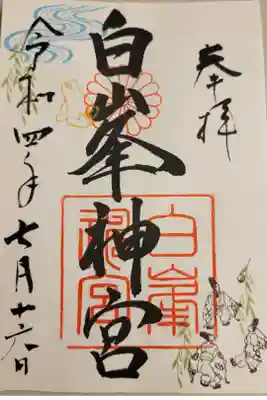 奉拝
白峯神宮
白峯神宮
令和四年七月十六日